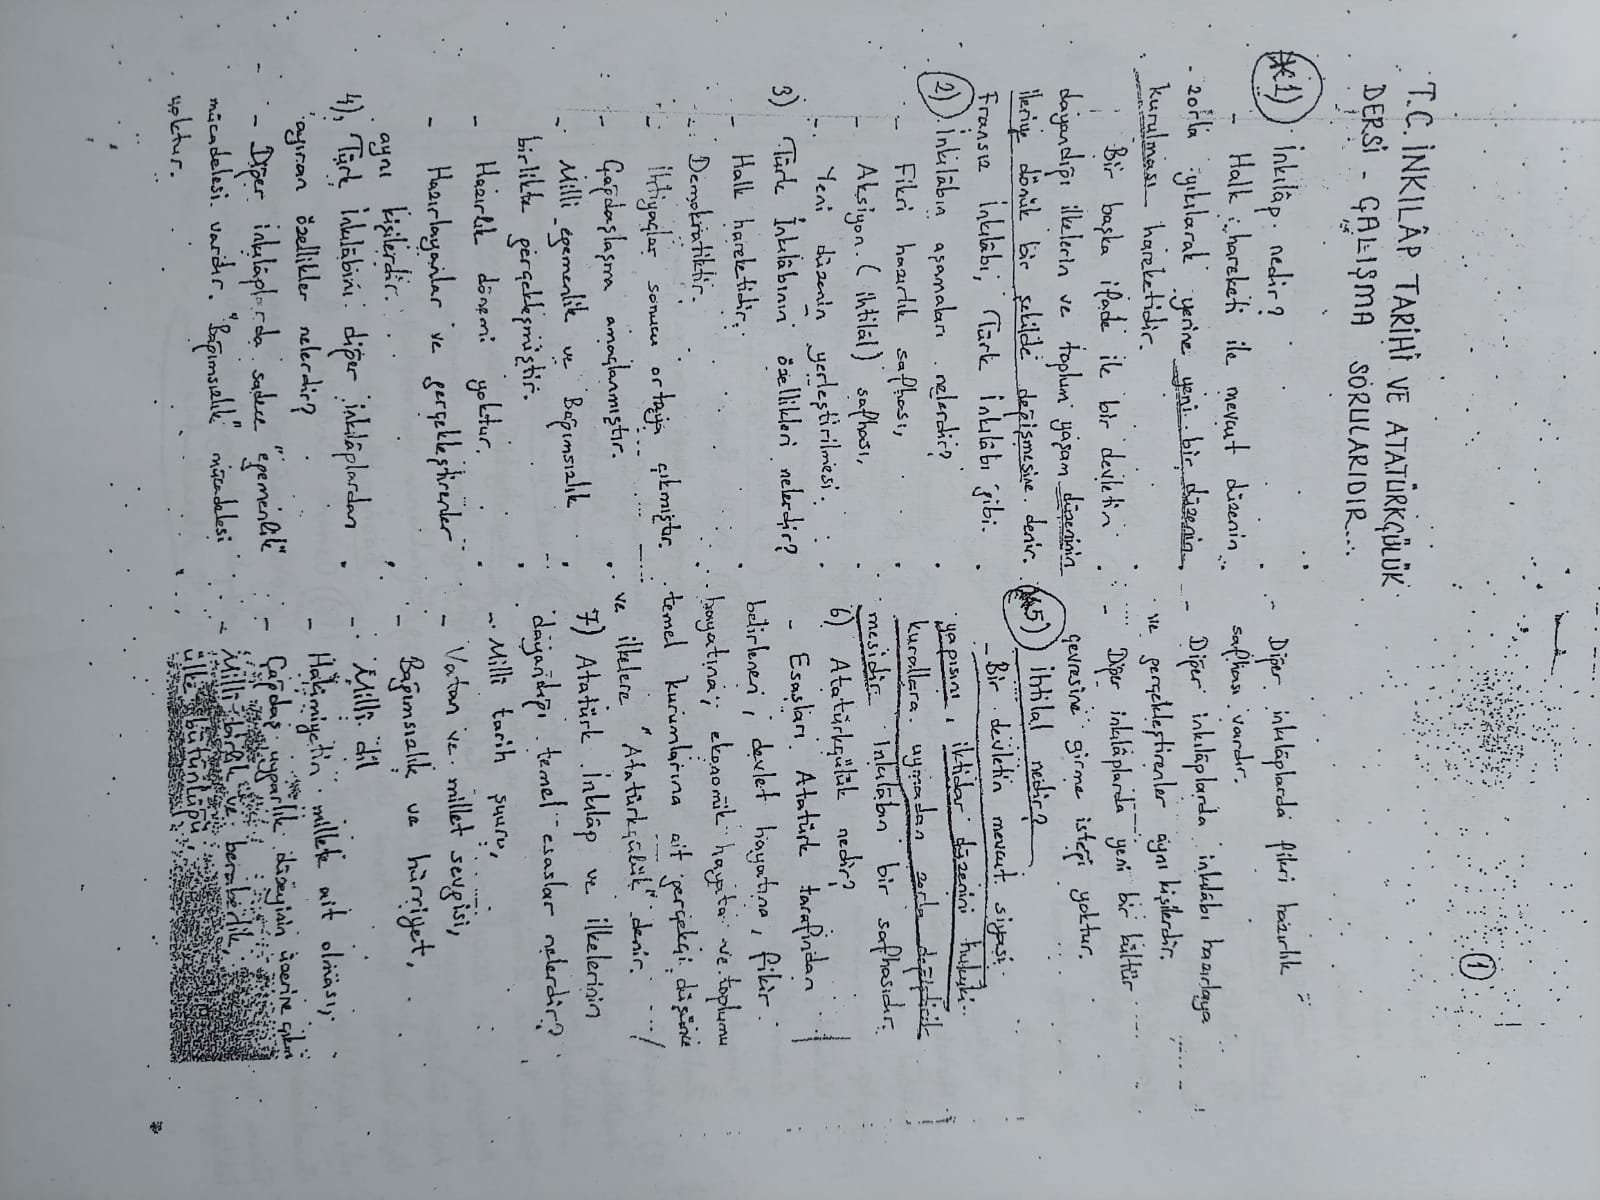 1
T.C. İNKILÂP TARİHİ VE ATATÜRKÇÜLÜK
DERSİ - ÇALIŞMA SORULARIDIR...
1) İnkılâp nedir?
- Halk hareketi ile mevcut düzenin
zorla yıkılarak yerine yeni bir düzenin
kurulması hareketidir.
Bir başka ifade ile bir devletin
dayandığı ilkelerin ve toplum yaşam düzeninin
ileriye dönük bir şekilde değişmesine denir.
Fransız İnkılâbı, Türk İnkılâbı gibi.
2) İnkılâbın aşamaları nelerdir?
- Fikri hazırlık safhası,
- Aksiyon (ihtilâl) safhası,
- Yeni düzenin yerleştirilmesi.
3) Türk İnkılâbının özellikleri nelerdir?
- Halk hareketidir.
- Demokratiktir.
- İhtiyaçlar sonucu ortaya çıkmıştır.
- Çağdaşlaşma amaçlanmıştır.
- Milli egemenlik ve Bağımsızlık
birlikte gerçekleşmiştir.
- Hazırlık dönemi yoktur.
- Hazırlayanlar ve gerçekleştirenler
aynı kişilerdir.
4) Türk İnkılâbını diğer inkılâplardan
ayıran özellikler nelerdir?
- Diğer inkılâplarda sadece "egemenlik"
mücadelesi vardır. "Bağımsızlık" mücadelesi
yoktur.
- Diğer inkılâplarda fikri hazırlık
safhası vardır.
- Diğer inkılâplarda inkılâbı hazırlaya
ve gerçekleştirenler aynı kişilerdir.
- Diğer inkılâplarda yeni bir kültür
çevresine girme isteği yoktur.
5) İhtilal nedir?
- Bir devletin mevcut siyasi
yapısını, iktidar düzenini hukuki
kurallara uymadan zorla değiştiril
mesidir. İnkılâbın bir safhasıdır.
6) Atatürkçülük nedir?
- Esasları Atatürk tarafından
belirlenen; devlet hayatına, fikir
hayatına; ekonomik hayata ve toplumu
temel kurumlarına ait gerçekçi düşünce
ve ilkelere "Atatürkçülük" denir.
7) Atatürk İnkılâp ve ilkelerinin
dayandığı temel esaslar nelerdir?
- Milli tarih şuuru,
- Vatan ve millet sevgisi,
- Bağımsızlık ve hürriyet,
- Milli dil
- Hakimiyetin millete ait olması,
- Çağdaş uygarlık düzeyinin üzerine çıkm
- Milli birlik ve beraberlik,
ülke bütünlüğü.